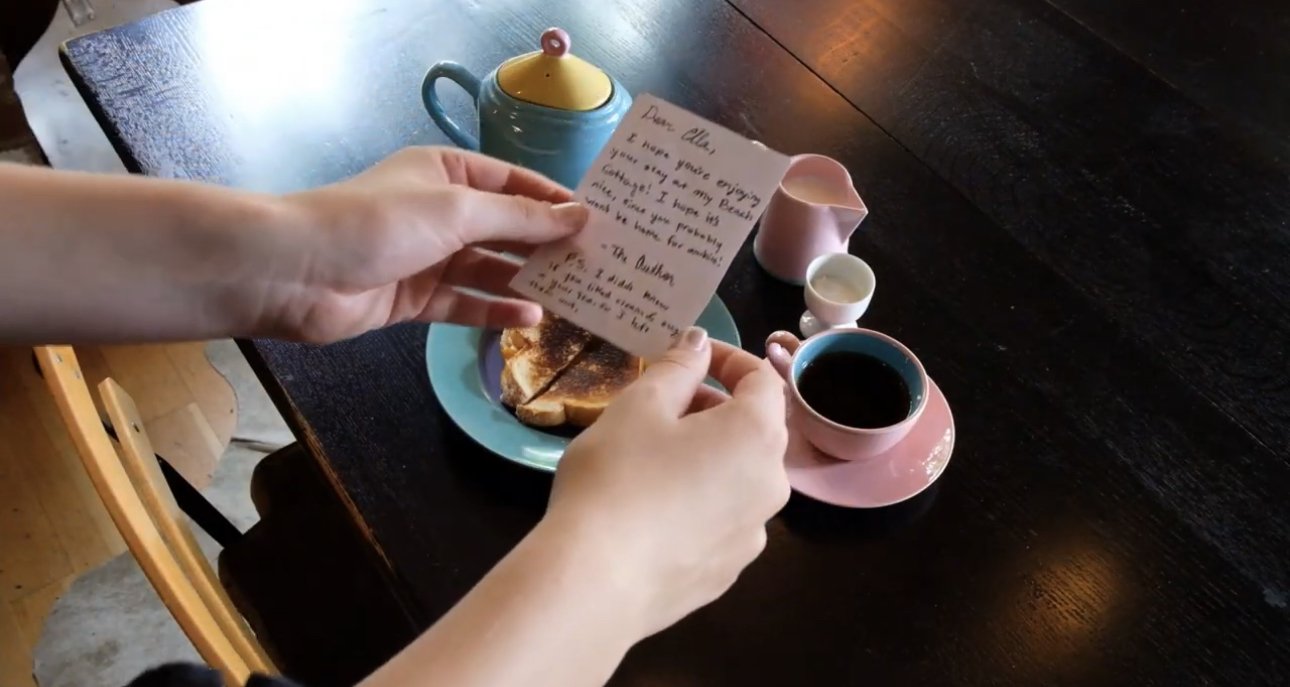 Dear Ella,
I hope you're enjoying
your stay at my Beach
Cottage! I hope it's
nice, since you probably
won't be home for awhile!
- The Author
P.S. I didn't know
if you liked cream &
your tea, so I left
them out.